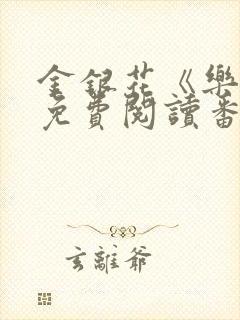 金銀花《樂
免費閱讀番
玄離爺